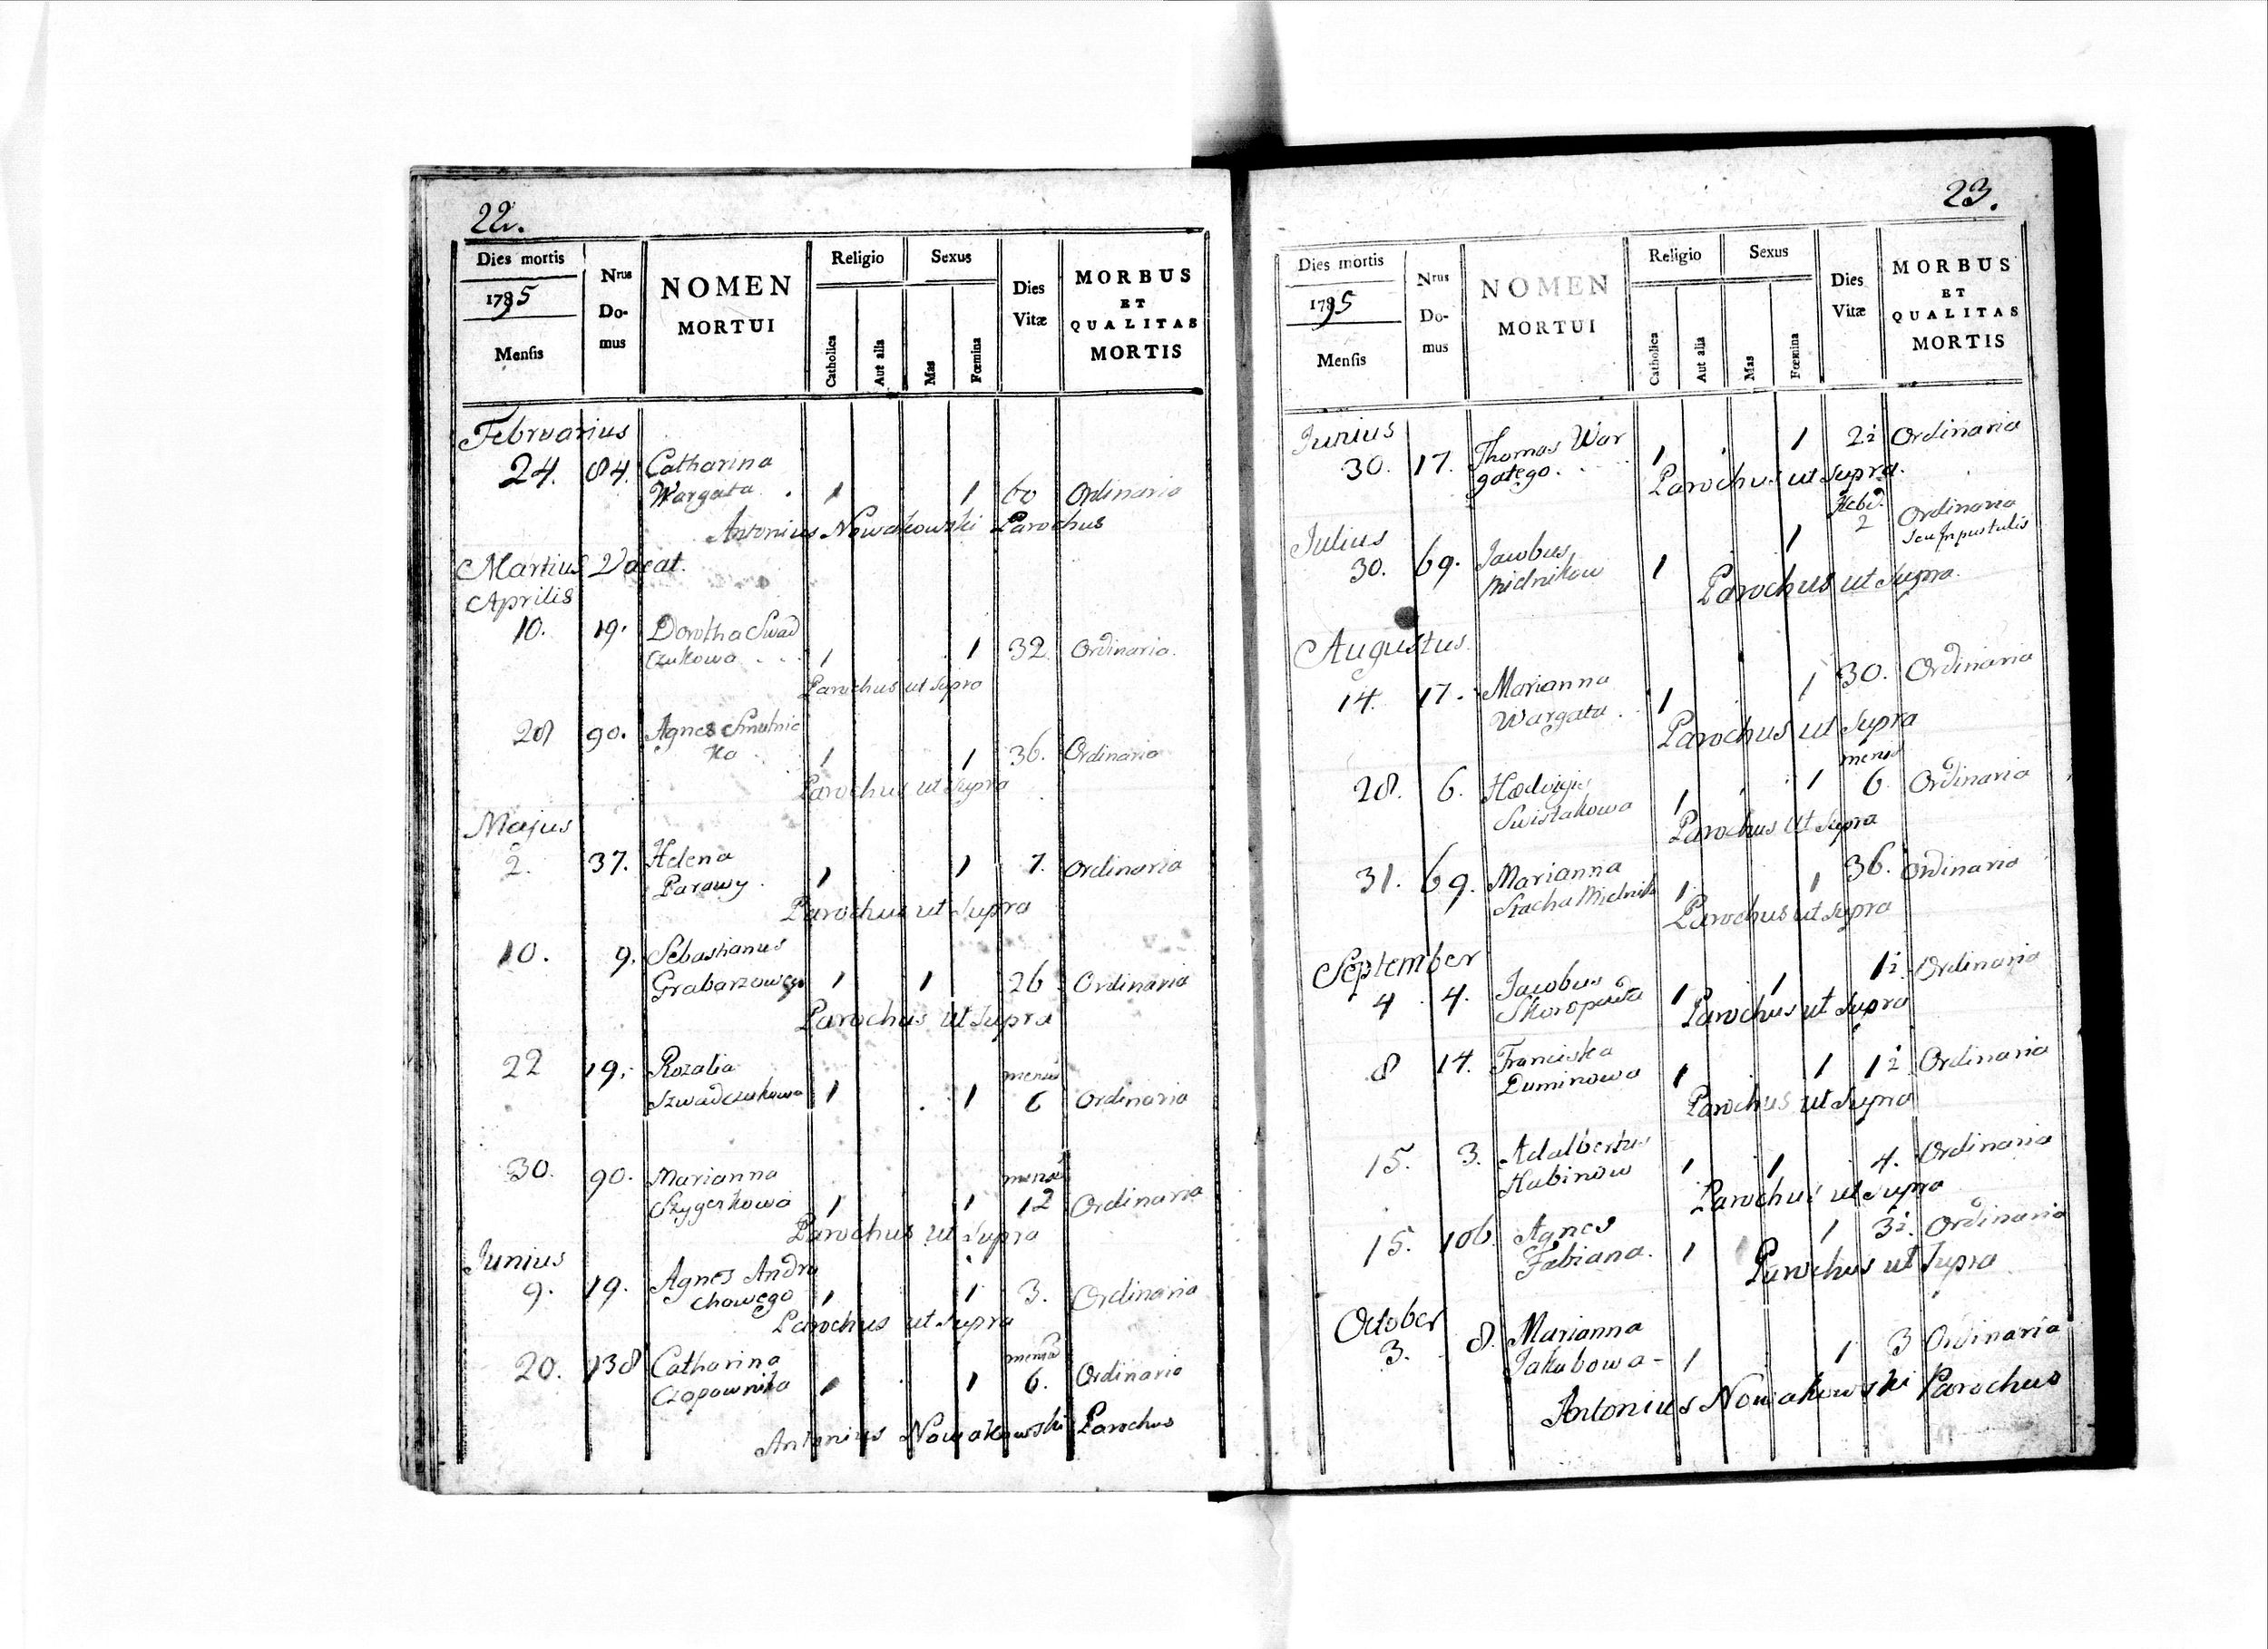 22.
Dies mortis
1795
Mensis
Nrus
Do-
mus
NOMEN
MORTUI
Religio
Catholica
Aut alia
Sexus
Mas
Fœmina
Dies
Vitæ
MORBUS
ET
QUALITAS
MORTIS
Februarius
24. 84. Catharina
Wargata . 1 1 60 Ordinaria
Antonius Nowakowski Parochus
Martius Vacat.
Aprilis
10. 19. Dorotha Swad
czukowa . . . 1 1 32. Ordinaria.
Parochus ut Supra
28 90. Agnes Smutnic
ka 1 1 36. Ordinaria
Parochus ut Supra
Majus
2. 37. Helena
Parawy . 1 1 7. Ordinaria
Parochus ut Supra
10. 9. Sebastianus
Grabarzowego 1 1 26 Ordinaria
Parochus ut Supra
22 19. Rozalia
Szwadczukowa 1 1 mensis 6 Ordinaria
30. 90. Marianna
Szygerkowa 1 1 mens 12 Ordinaria
Parochus ut Supra
Junius
9. 19. Agnes Andru
chowego 1 1 3. Ordinaria
Parochus ut Supra
20. 138 Catharina
Czopownika 1 1 6. Ordinario
Antonius Nowakowski Parochus
23.
Dies mortis
1795
Mensis
Nrus
Do-
mus
NOMEN
MORTUI
Religio
Catholica
Aut alia
Sexus
Mas
Fœmina
Dies
Vitæ
MORBUS
ET
QUALITAS
MORTIS
Junius
30. 17. Thomas War
gatego. 1 1 2i Ordinaria
Parochus ut Supra.
Julius
30. 69. Jacobus
Mielnikow 1 1 Hebd. 2 Ordinaria
seu In pustulis
Parochus ut Supra.
Augustus.
14. 17. Marianna
Wargata . 1 1 30. Ordinaria
Parochus ut Supra
28. 6. Hedvigis
Swistakowa 1 1 mens 6 Ordinaria
Parochus ut Supra
31. 69. Marianna
Stacha Mielnik 1 1 36. Ordinaria
Parochus ut Supra
September
4 4. Jacobus
Skoropada 1 1 1i. Ordinaria
Parochus ut Supra
8 14. Franciska
Duminowa 1 1 1i Ordinaria
Parochus ut Supra
15. 3. Adalbertus
Kubinow 1 1 4. Ordinaria
Parochus ut Supra
15. 106. Agnes
Fabiana. 1 1 3i. Ordinaria
Parochus ut Supra
October
3. 8. Marianna
Jakubowa - 1 1 3 Ordinaria
Antonius Nowakowski Parochus